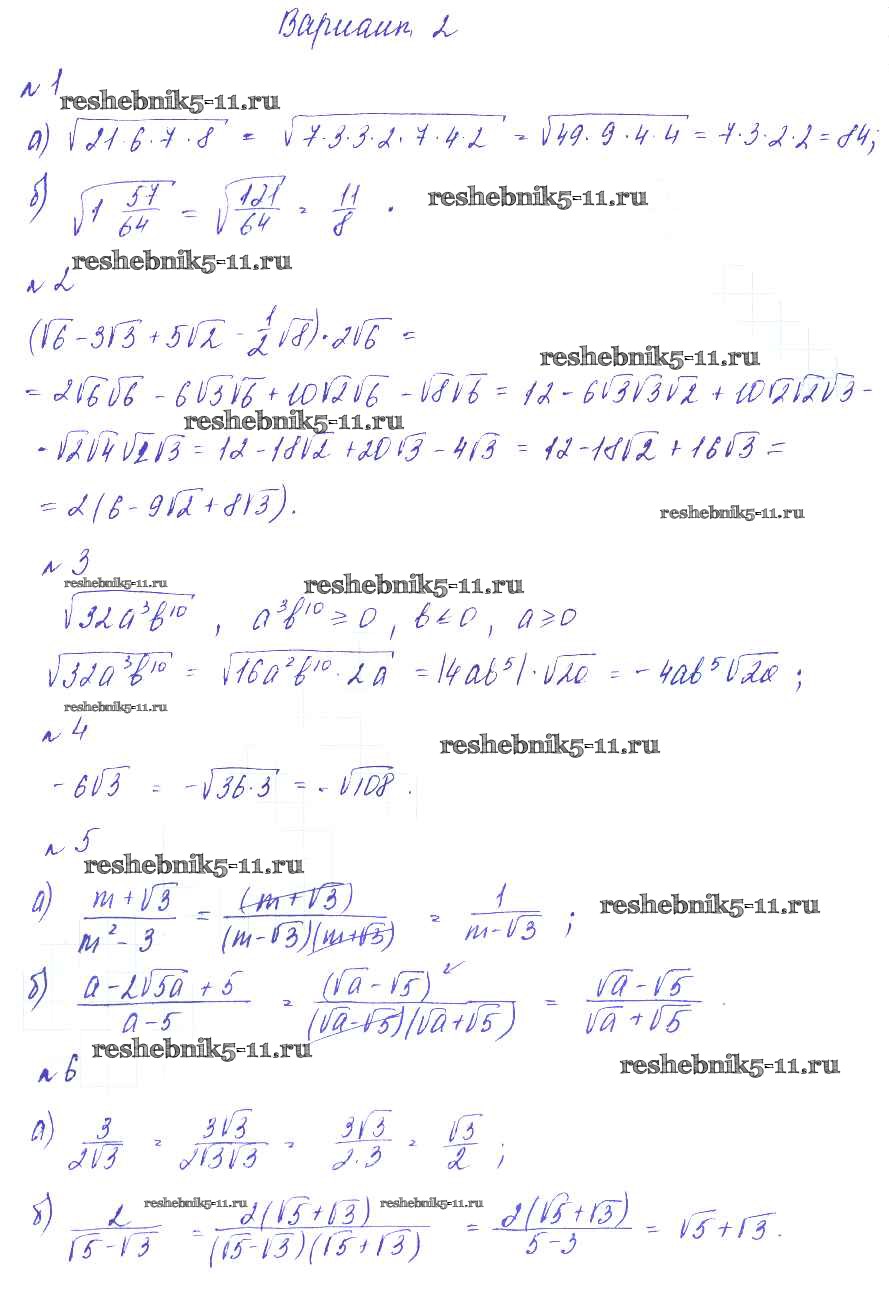 Вариант 2
№ 1
reshebnik5-11.ru
а) √(21·6·7·8) = √(7·3·3·2·7·4·2) = √(49·9·4·4) = 7·3·2·2 = 84;
б) √(1 57/64) = √(121/64) = 11/8 .
reshebnik5-11.ru
reshebnik5-11.ru
№ 2
(√6 - 3√3 + 5√2 - 1/2 √8)·2√6 =
reshebnik5-11.ru
= 2√6√6 - 6√3√6 + 10√2√6 - √8√6 = 12 - 6√3√3√2 + 10√2√2√3 -
reshebnik5-11.ru
- √2√4√2√3 = 12 - 18√2 + 20√3 - 4√3 = 12 - 18√2 + 16√3 =
= 2(6 - 9√2 + 8√3).
reshebnik5-11.ru
№ 3
reshebnik5-11.ru
reshebnik5-11.ru
√(32a³b¹⁰) , a³b¹⁰ ≥ 0 , b ≤ 0 , a ≥ 0
√(32a³b¹⁰) = √(16a²b¹⁰·2a) = |4ab⁵|·√2a = - 4ab⁵√2a ;
reshebnik5-11.ru
№ 4
reshebnik5-11.ru
- 6√3 = -√(36·3) = - √108 .
№ 5
reshebnik5-11.ru
а) (m + √3)/(m² - 3) = (m + √3)/((m - √3)(m + √3)) = 1/(m - √3) ;
reshebnik5-11.ru
б) (a - 2√5a + 5)/(a - 5) = (√a - √5)²/((√a - √5)(√a + √5)) = (√a - √5)/(√a + √5) .
reshebnik5-11.ru
reshebnik5-11.ru
№ 6
а) 3/(2√3) = 3√3/(2√3√3) = 3√3/(2·3) = √3/2 ;
reshebnik5-11.ru
reshebnik5-11.ru
б) 2/(√5 - √3) = 2(√5 + √3)/((√5 - √3)(√5 + √3)) = 2(√5 + √3)/(5 - 3) = √5 + √3 .